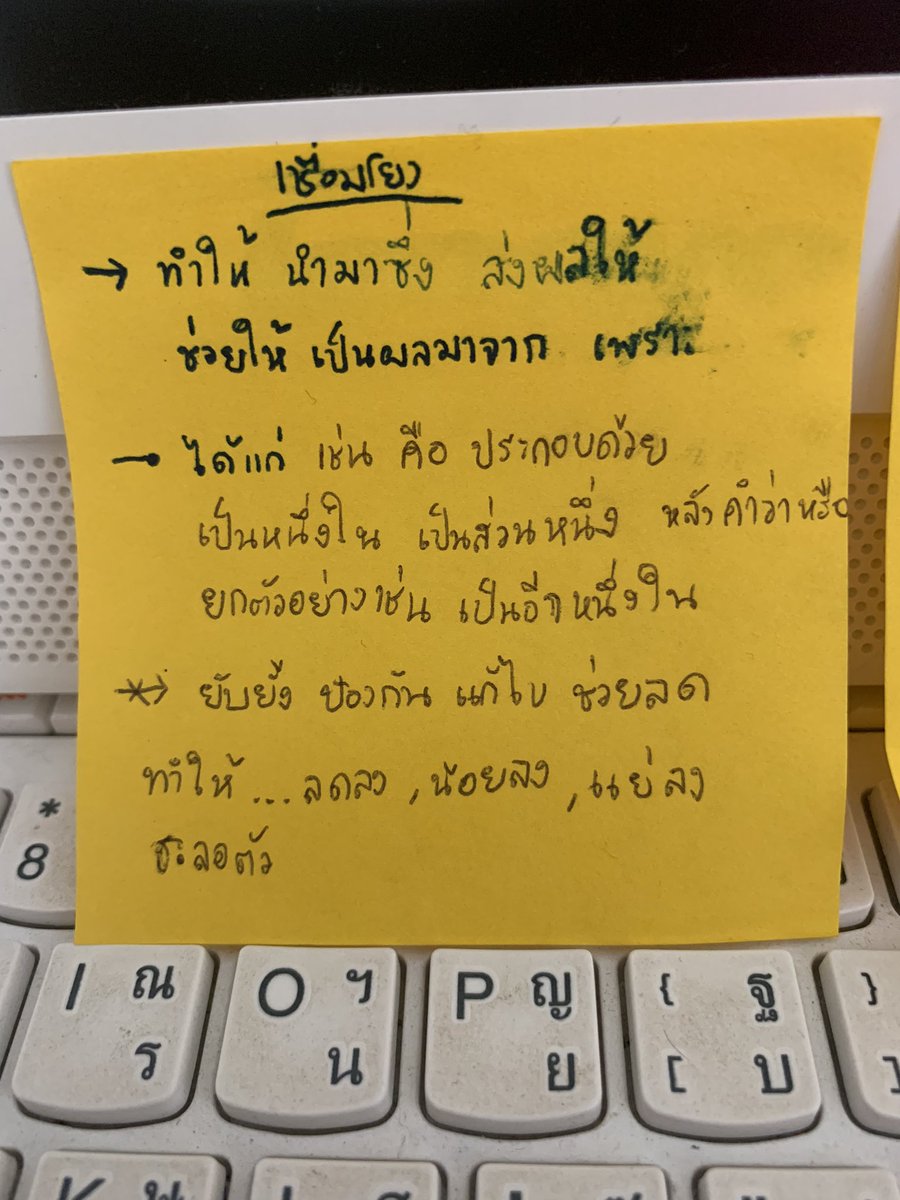 เชื่อมโยง
→ ทำให้ นำมาซึ่ง ส่งผลให้
ช่วยให้ เป็นผลมาจาก เพราะ
→ ได้แก่ เช่น คือ ประกอบด้วย
เป็นหนึ่งใน เป็นส่วนหนึ่ง หลังคำว่าหรือ
ยกตัวอย่างเช่น เป็นอีกหนึ่งใน
*→ ยับยั้ง ป้องกัน แก้ไข ช่วยลด
ทำให้ ... ลดลง , น้อยลง , แย่ลง
ชะลอตัว
* 8
I ณ ร
O ฯ น
P ญ ย
{ ฐ [ บ
} ]